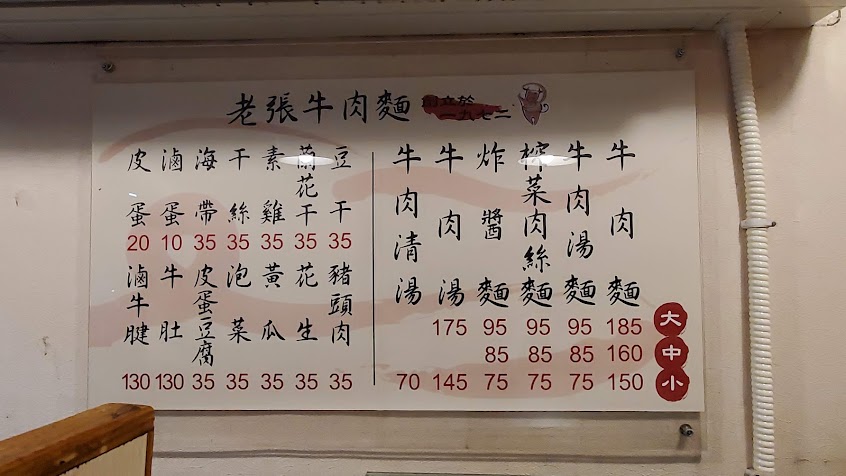 老張牛肉麵 創立於
一九七二
牛肉麵 185 160 150
牛肉湯麵 95 85 75
榨菜肉絲麵 95 85 75
炸醬麵 95 85 75
牛肉湯 175 145
牛肉清湯 70
大
中
小
豆干 35
蘭花干 35
素雞 35
干絲 35
海帶 35
滷蛋 10
皮蛋 20
豬頭肉 35
花生 35
黃瓜 35
泡菜 35
皮蛋豆腐 35
牛肚 130
滷牛腱 130